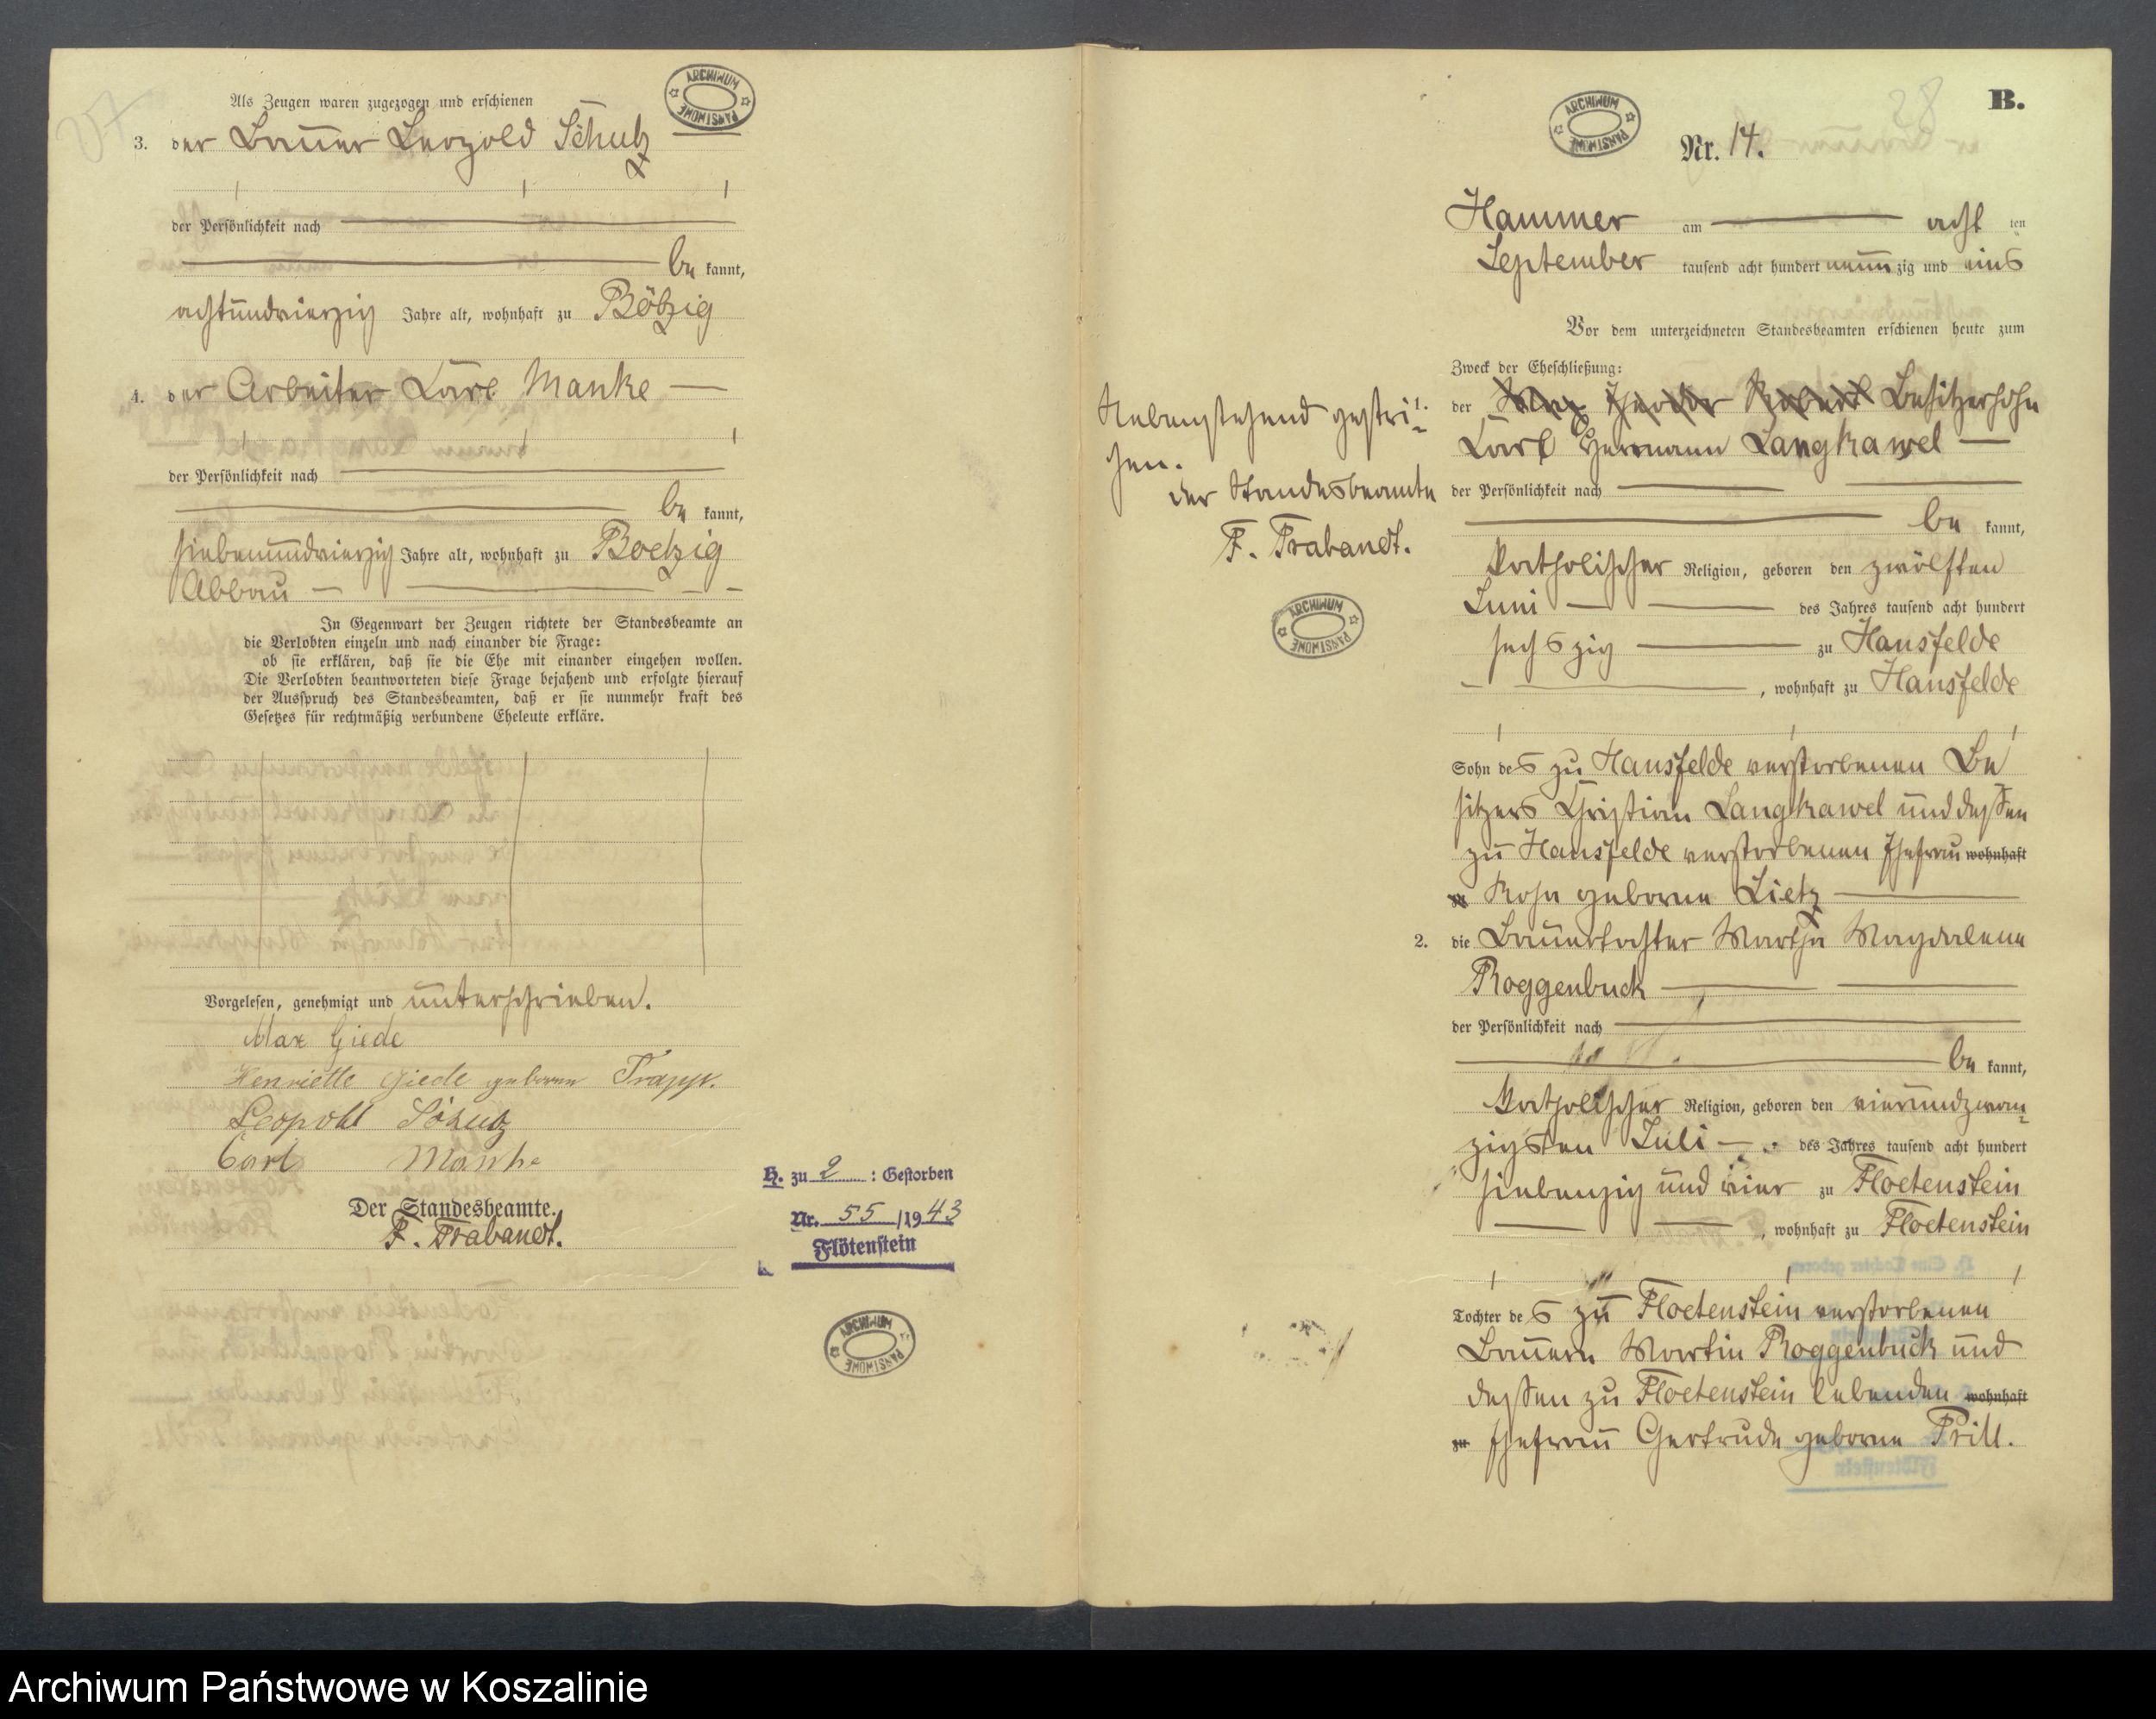 Als Zeugen waren zugezogen und erschienen
3. der Bauer Leopold Schulz
der Persönlichkeit nach
be kannt,
achtundvierzig Jahre alt, wohnhaft zu Bölzig
4. der Arbeiter Karl Manke
der Persönlichkeit nach
be kannt,
siebenundvierzig Jahre alt, wohnhaft zu Boelzig
Abbau
In Gegenwart der Zeugen richtete der Standesbeamte an
die Verlobten einzeln und nach einander die Frage:
ob sie erklären, daß sie die Ehe mit einander eingehen wollen.
Die Verlobten beantworteten diese Frage bejahend und erfolgte hierauf
der Ausspruch des Standesbeamten, daß er sie nunmehr kraft des
Gesetzes für rechtmäßig verbundene Eheleute erkläre.
Vorgelesen, genehmigt und unterschrieben.
Max Giede
Henriette Giede geborene Trapp.
Leopold Schulz
Carl Manke
Der Standesbeamte.
F. Trabandt.
H. zu 2 : Gestorben
Nr. 55 /1943
Flötenstein
ARCHIWUM PAŃSTWOWE
ARCHIWUM PAŃSTWOWE
B.
38
ARCHIWUM PAŃSTWOWE
Nr. 14.
Hammer am acht ten
September tausend acht hundert neun zig und eins
Vor dem unterzeichneten Standesbeamten erschienen heute zum
Zweck der Eheschließung:
1. der Max Theodor Robert Besitzersohn
Karl Hermann Langkawel
der Persönlichkeit nach
be kannt,
katholischer Religion, geboren den zwölften
Juni des Jahres tausend acht hundert
sechszig zu Hansfelde
, wohnhaft zu Hansfelde
Sohn des zu Hansfelde verstorbenen Be
sitzers Christian Langkawel und dessen
zu Hansfelde verstorbenen Ehefrau wohnhaft
zu Rosa geborne Lietz
2. die Bauertochter Martha Magdalena
Roggenbuck
der Persönlichkeit nach
be kannt,
katholischer Religion, geboren den vierundzwan-
zigsten Juli des Jahres tausend acht hundert
siebenzig und vier zu Floetenstein
, wohnhaft zu Floetenstein
Tochter des zu Floetenstein verstorbenen
Bauern Martin Roggenbuck und
dessen zu Floetenstein lebenden wohnhaft
zu Ehefrau Gertrude geborne Prill.
Nebenstehend gestri-
chen.
der Standesbeamte
F. Trabandt.
ARCHIWUM PAŃSTWOWE
Archiwum Państwowe w Koszalinie